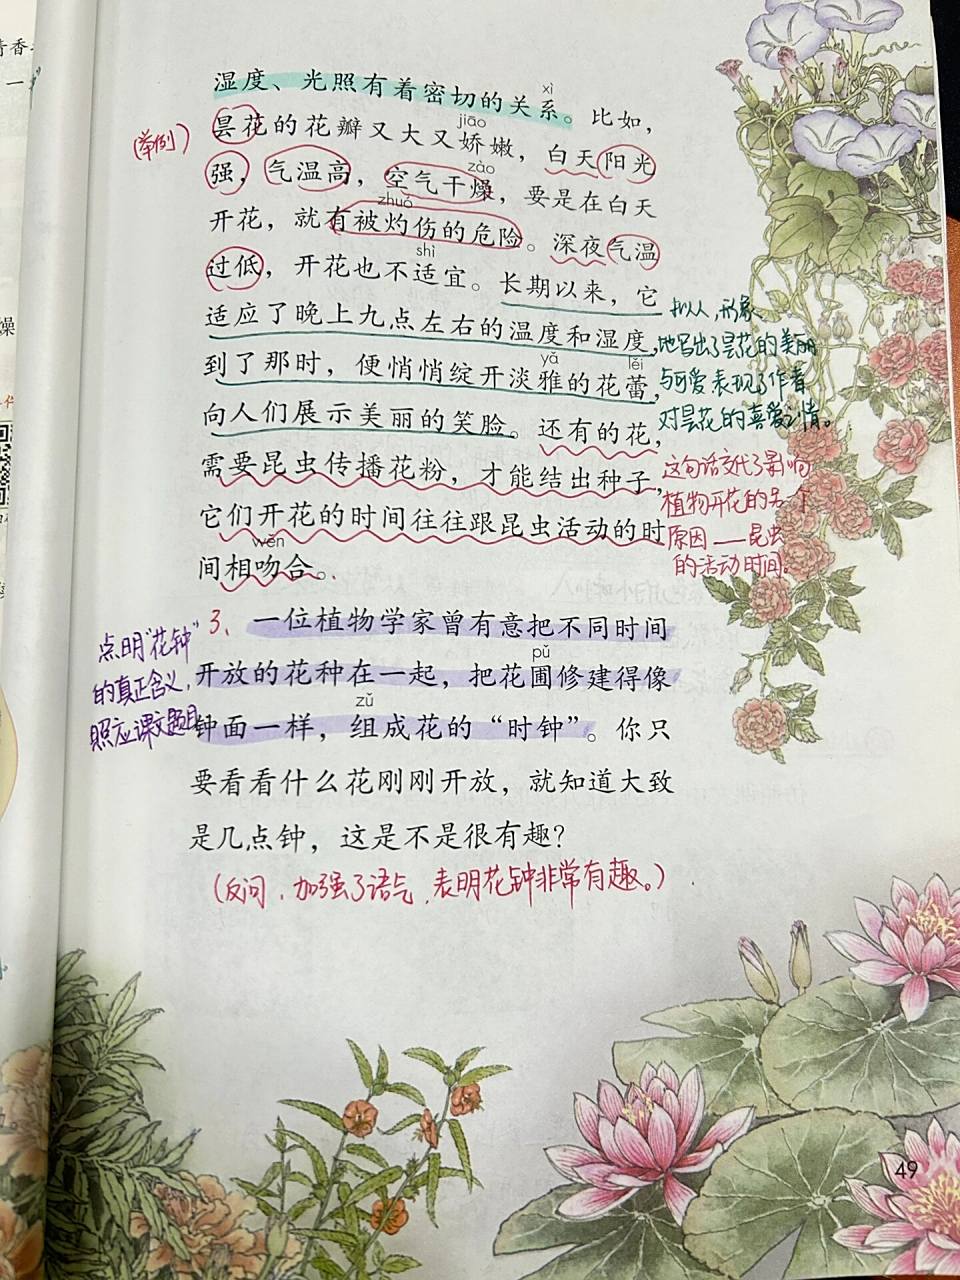 湿度、光照有着密切的关系。比如，
xì
(举例)
昙花的花瓣又大又娇嫩，白天阳光
jiāo
强，气温高，空气干燥，要是在白天
zào
开花，就有被灼伤的危险。深夜气温
zhuó
过低，开花也不适宜。长期以来，它
shì
适应了晚上九点左右的温度和湿度，
到了那时，便悄悄绽开淡雅的花蕾，
yǎ
lěi
向人们展示美丽的笑脸。还有的花，
拟人，形象
地写出了昙花的美丽
与可爱表现了作者
对昙花的喜爱之情。
需要昆虫传播花粉，才能结出种子，
它们开花的时间往往跟昆虫活动的时
间相吻合。
wěn
这句话交代了影响
植物开花的另一个
原因——昆虫
的活动时间。
3、一位植物学家曾有意把不同时间
开放的花种在一起，把花圃修建得像
pǔ
钟面一样，组成花的“时钟”。你只
zǔ
点明“花钟”
的真正含义，
照应课文题目
要看看什么花刚刚开放，就知道大致
是几点钟，这是不是很有趣？
(反问，加强了语气，表明花钟非常有趣。)
49